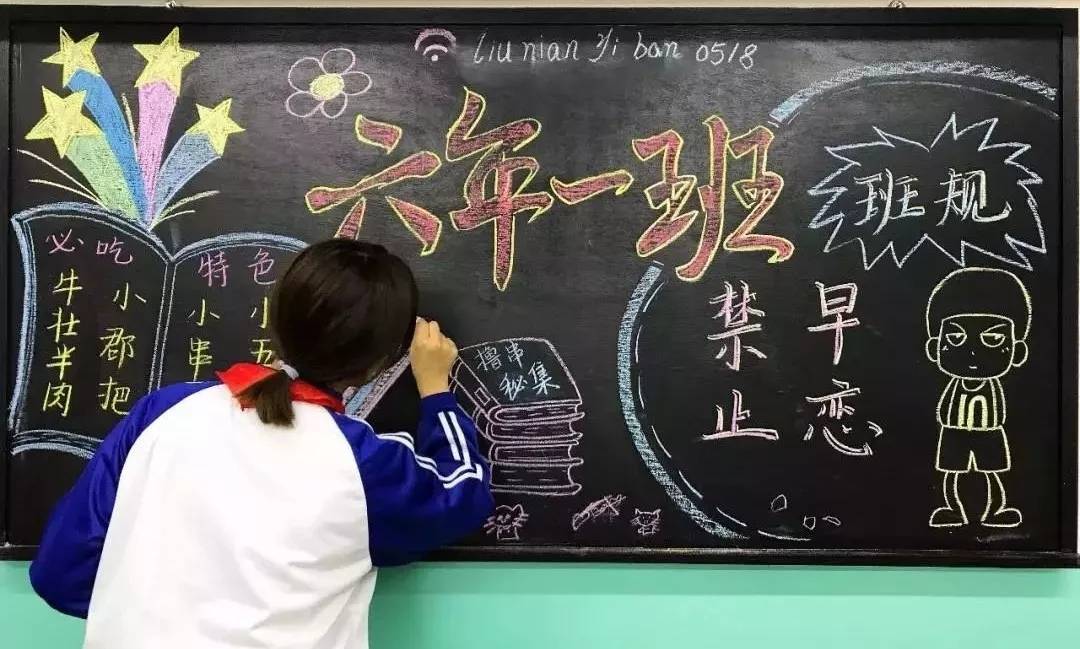 liu nian yi ban 0518
六年一班
必吃
牛壮羊肉
小郡把
特色
小串
小五
撸串
秘集
班规
禁止
早恋